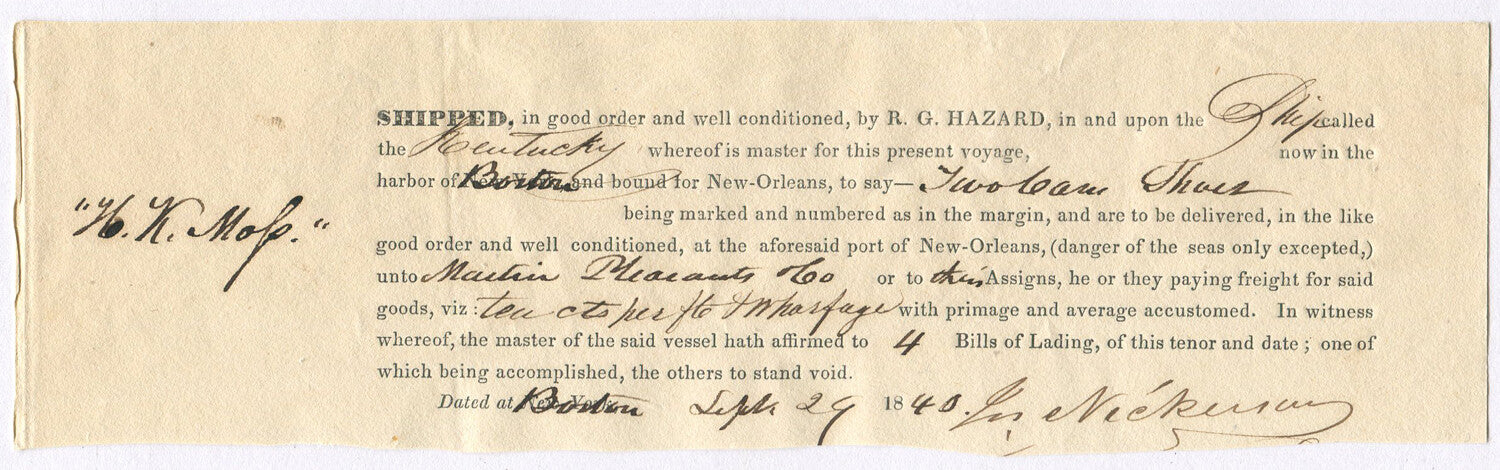 SHIPPED, in good order and well conditioned, by R. G. HAZARD, in and upon the Ship called
the Kentucky whereof is master for this present voyage, now in the
harbor of New-York, Boston and bound for New-Orleans, to say— Two Cases Shoes
being marked and numbered as in the margin, and are to be delivered, in the like
"H. K. Moss."
good order and well conditioned, at the aforesaid port of New-Orleans, (danger of the seas only excepted,)
unto Martin Pleasants & Co or to their Assigns, he or they paying freight for said
goods, viz: ten cts per ft & Wharfage with primage and average accustomed. In witness
whereof, the master of the said vessel hath affirmed to 4 Bills of Lading, of this tenor and date; one of
which being accomplished, the others to stand void.
Dated at New-York Boston Sept 29 1840. Nickerson